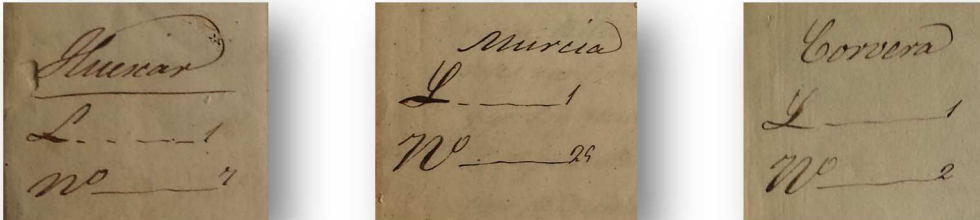 Huescar
L. . ____1
nº ____7
Murcia
L. ____1
Nº ____29
Corvera
L ____1
Nº ____2